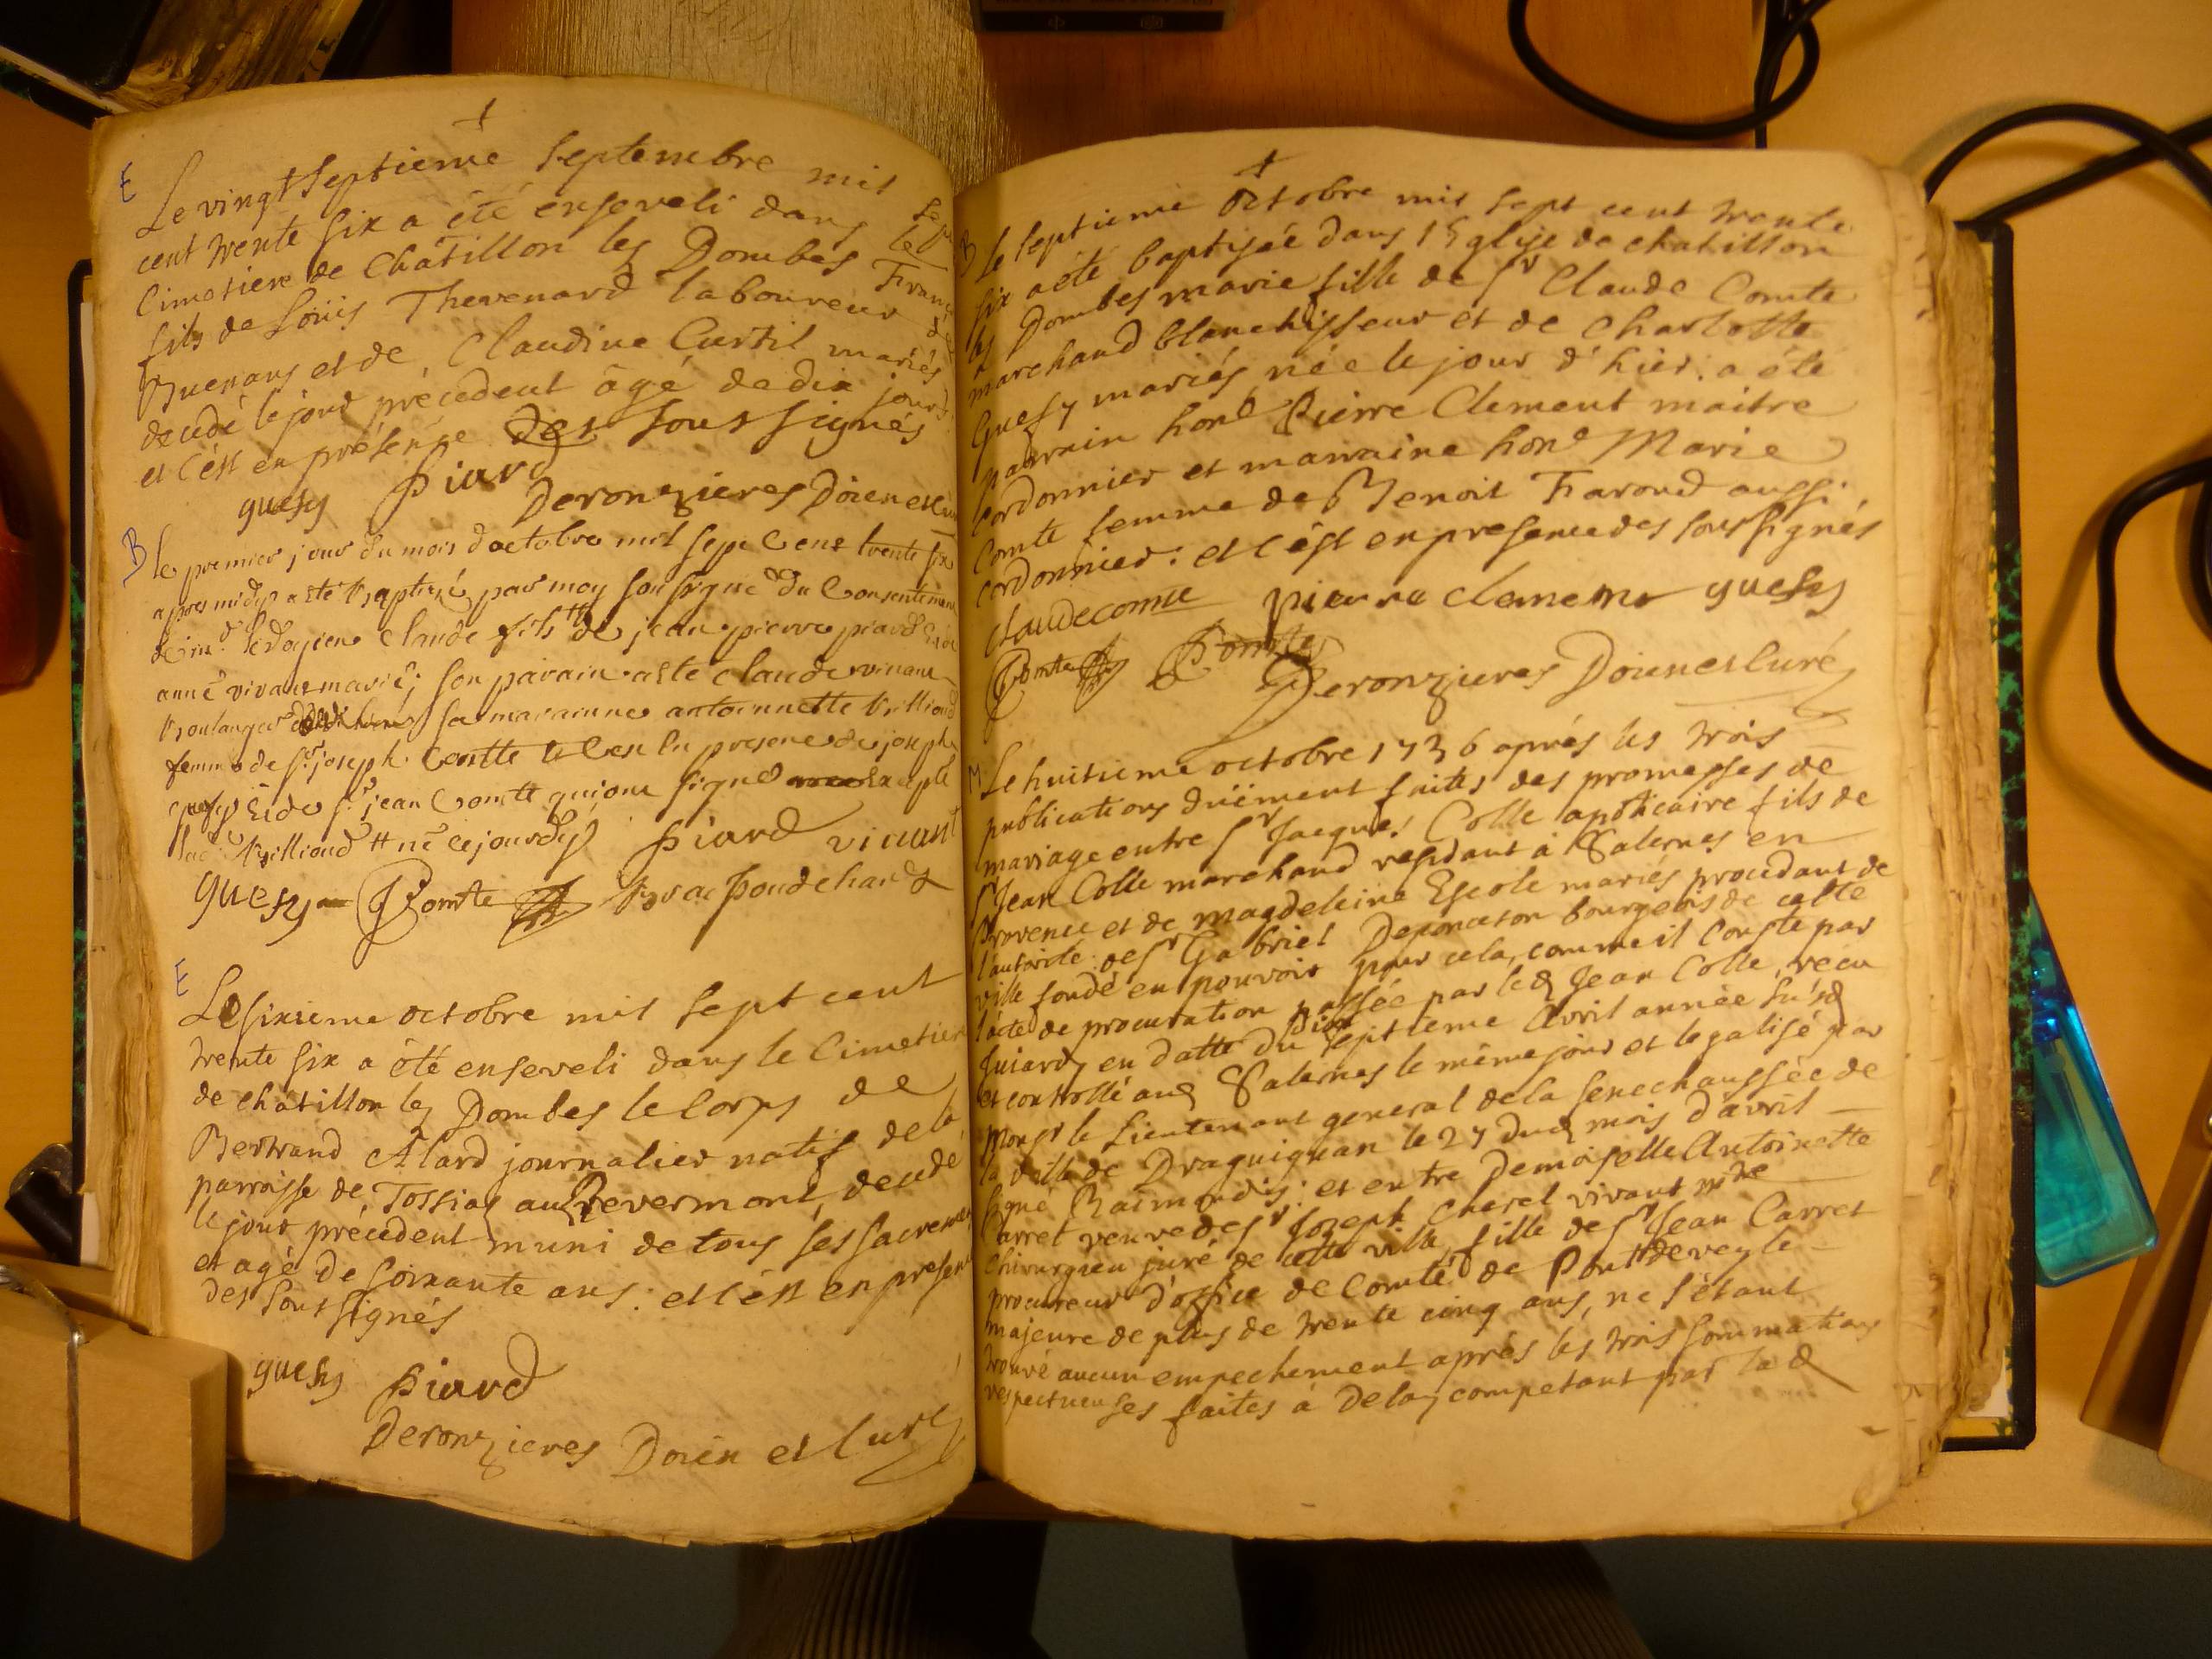 E
Le vingt Septieme Septembre mil Sept
cent trente six a été enseveli dans le
Cimetiere de Châtillon les Dombes Franç
fils de Loüis Thevenard laboureur de
Buenans et de Claudine Curtil mariés
decedé le jour précedent âgé de dix jours
et c'est en présence des soussignés
guesy Piard
Deronzieres Doien et Curé
B
le premier jour du mois doctobre mil sept cens trente six
apres midy a esté baptisé par moy soussigné du Consentement
claude fils de jean pierre piard Et de
anne vivant mariés; son parain a esté claude vivant
boulanger sa maraine antoinnette brilliond
femme de sr joseph Comtte et Cest En presence de joseph
guesy Et de sr jean Comte qui ont signé Excepté
lad brilliond # né ce jourdhy Piard vivant
guesy Comte
E
Le sixieme octobre mil sept cent
trente six a été enseveli dans le Cimetiere
de châtillon les Dombes le corps de
Bertrand Alard journalier natif de la
parroisse de Tossiat au Revermont, decedé
le jour précedent muni de tous ses sacremens
et agé de soixante ans: et c'est en presence
des soussignés
guesy Piard
Deronzieres Doien et Curé
B
Le septieme octobre mil sept cent trente
six a été baptisée dans l'Eglise de chatillon
les Dombes marie fille de Sr Claude Comte
marchand blanchisseur et de Charlotte
Guesy mariés, née le jour d'hier: a été
parrain hone Pierre Clement maitre
Cordonnier et marraine hone Marie
Comte femme de Benoit Faroud aussi
cordonnier: et c'est en presence des soussignés
claude comte pierre clement guesy
Comte Comte
Deronzieres Doien et Curé
M
Le huitieme octobre 1736 aprés les trois
publications düement faites des promesses de
mariage entre Sr Jacques Colle apoticaire fils de
Sr Jean Colle marchand residant à Salernes en
Provence et de magdeleine Escole mariés procedant de
l'autorité de Sr Gabriel Deponceton bourgeois de cette
ville fondé en pouvoir pour cela, comme il conste par
l'acte de procuration passée par led Jean Colle, reçu
en datte du dix septieme Avril année susd
et controllé aud Salernes le même jour et legalisé par
Monsr le Lieutenant general de la senechaussée de
la ville de Draguignan le 27 dud mois d'avril
signé Raimondis: et entre Demoiselle Antoinette
Carret veuve de Sr Joseph Cherel vivant mtre
Chirurgien juré de cette ville, fille de Sr Jean Carret
procureur d'office de Comté de Pont de veyle
majeure de plus de trente cinq ans, ne s'étant
trouvé aucun empechement aprés les trois sommations
respectueuses faites à delay competant par lad